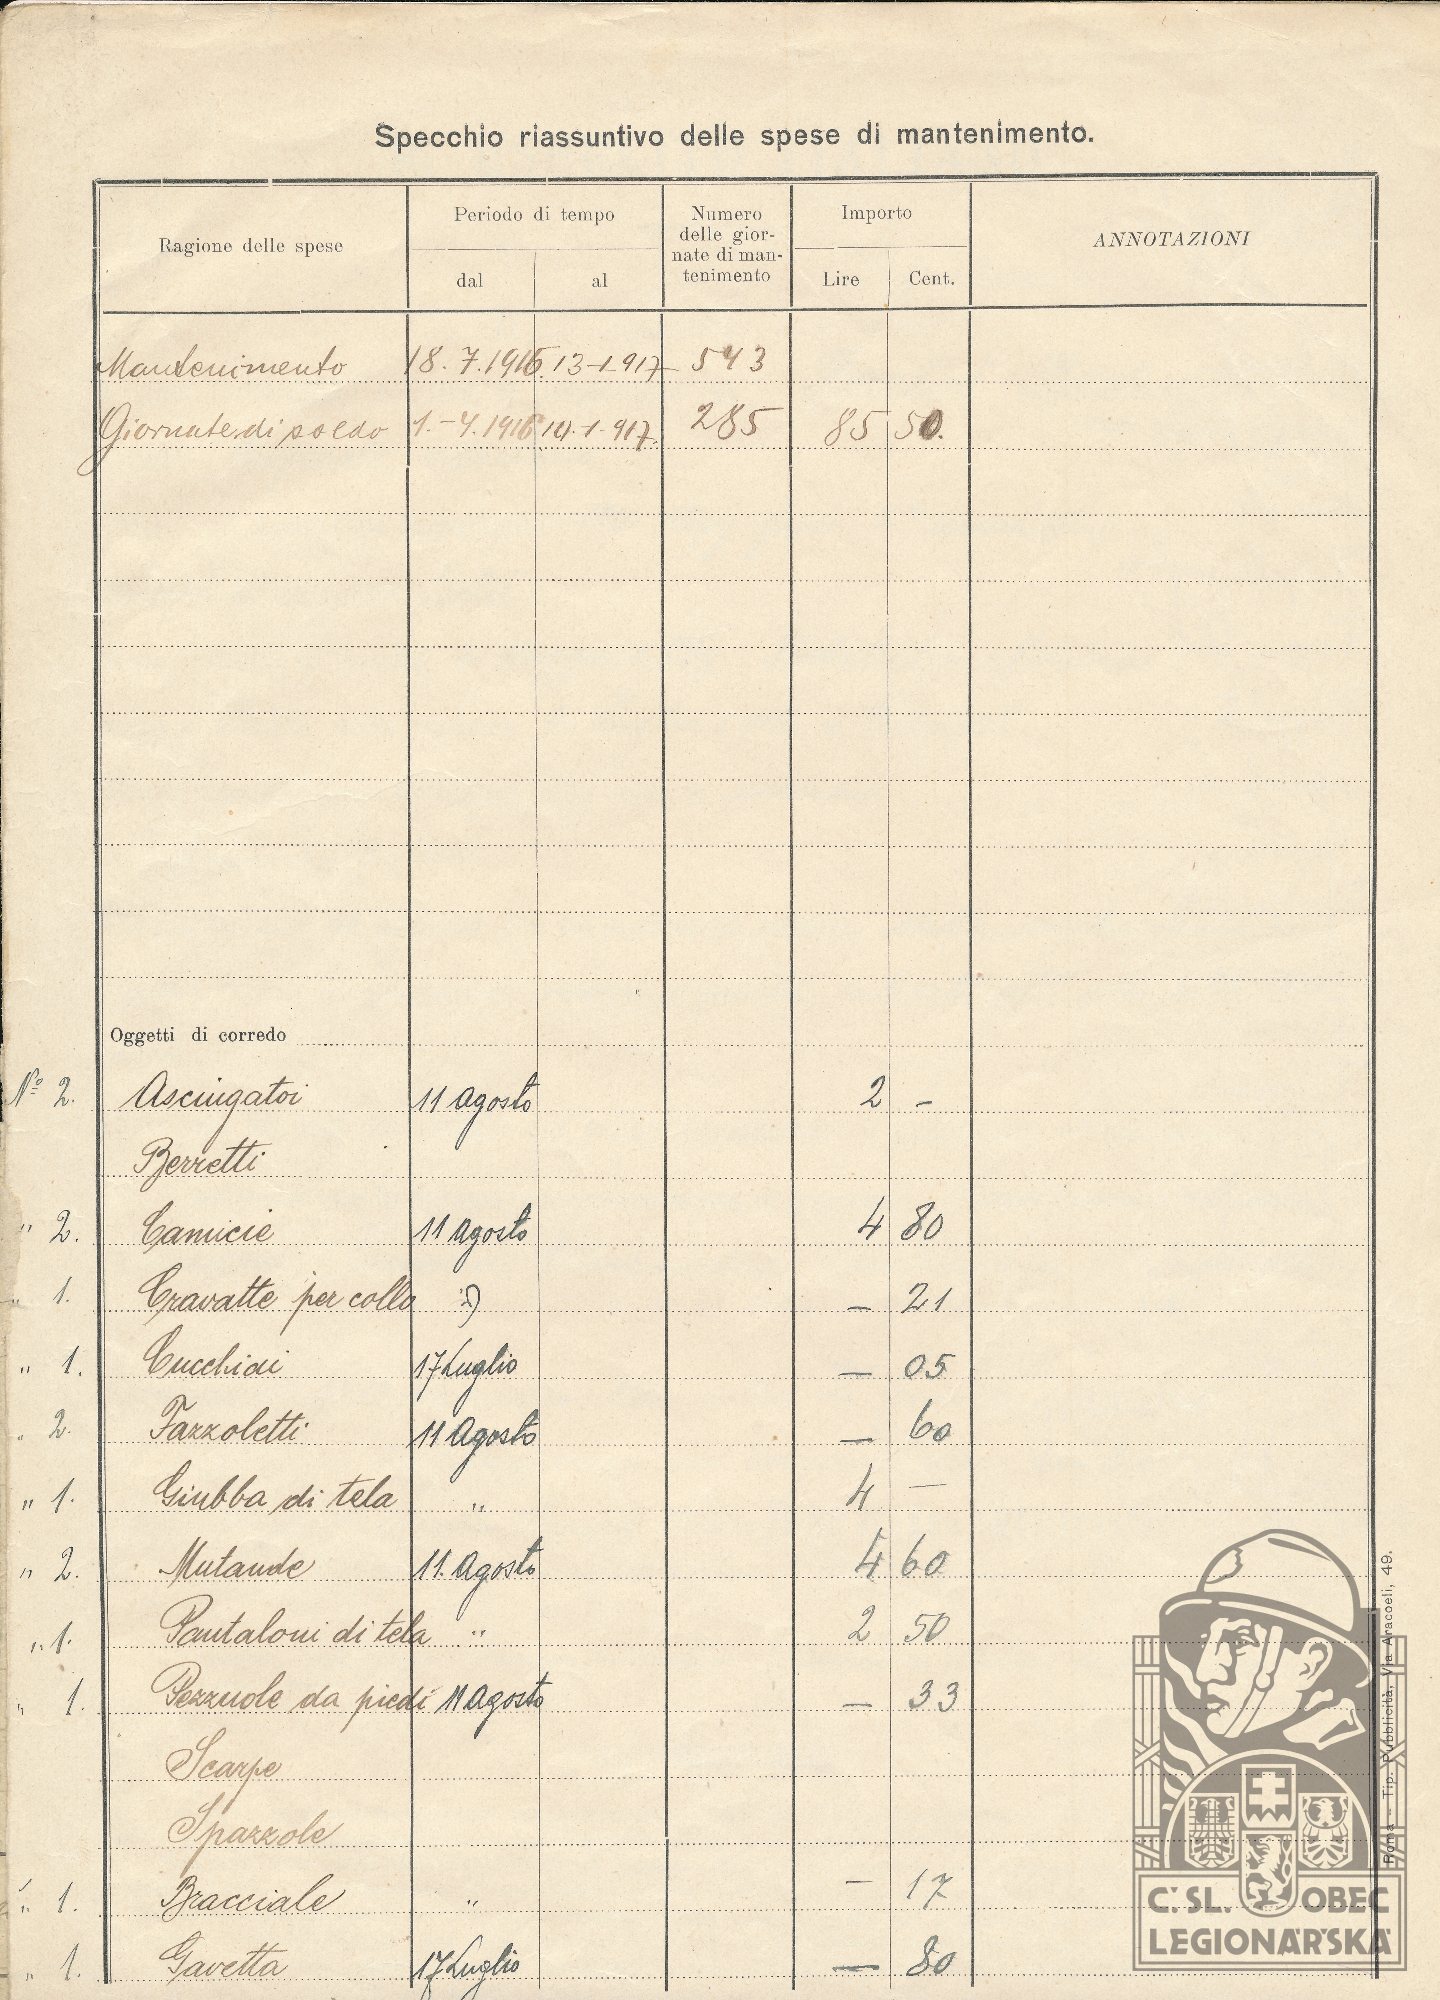 Specchio riassuntivo delle spese di mantenimento.
Ragione delle spese
Periodo di tempo
dal
al
Numero
delle gior-
nate di man-
tenimento
Importo
Lire
Cent.
ANNOTAZIONI
Mantenimento 18.7.1915 13-1-917 543
Giornate di soldo 1.-4.1916 10.1.917. 285 85 50.
Oggetti di corredo
Nº 2. Asciugatoi 11 agosto 2 –
Berretti
" 2. Camicie 11 agosto 4 80
" 1. Cravatte per collo — 21
" 1. Cucchiai 17 Luglio — 05
" 2. Fazzoletti 11 Agosto — 60
" 1. Giubba di tela " 4 —
" 2. Mutande 11. Agosto 4 60
" 1. Pantaloni di tela " 2 50
" 1. Pezzuole da piedi 11 Agosto — 33
Scarpe
Spazzole
" 1. Bracciale " — 17
" 1. Gavetta 17 Luglio — 80
Roma – Tip. Pubblicità, Via Aracoeli, 49.
Č.SL. OBEC
LEGIONÁŘSKÁ